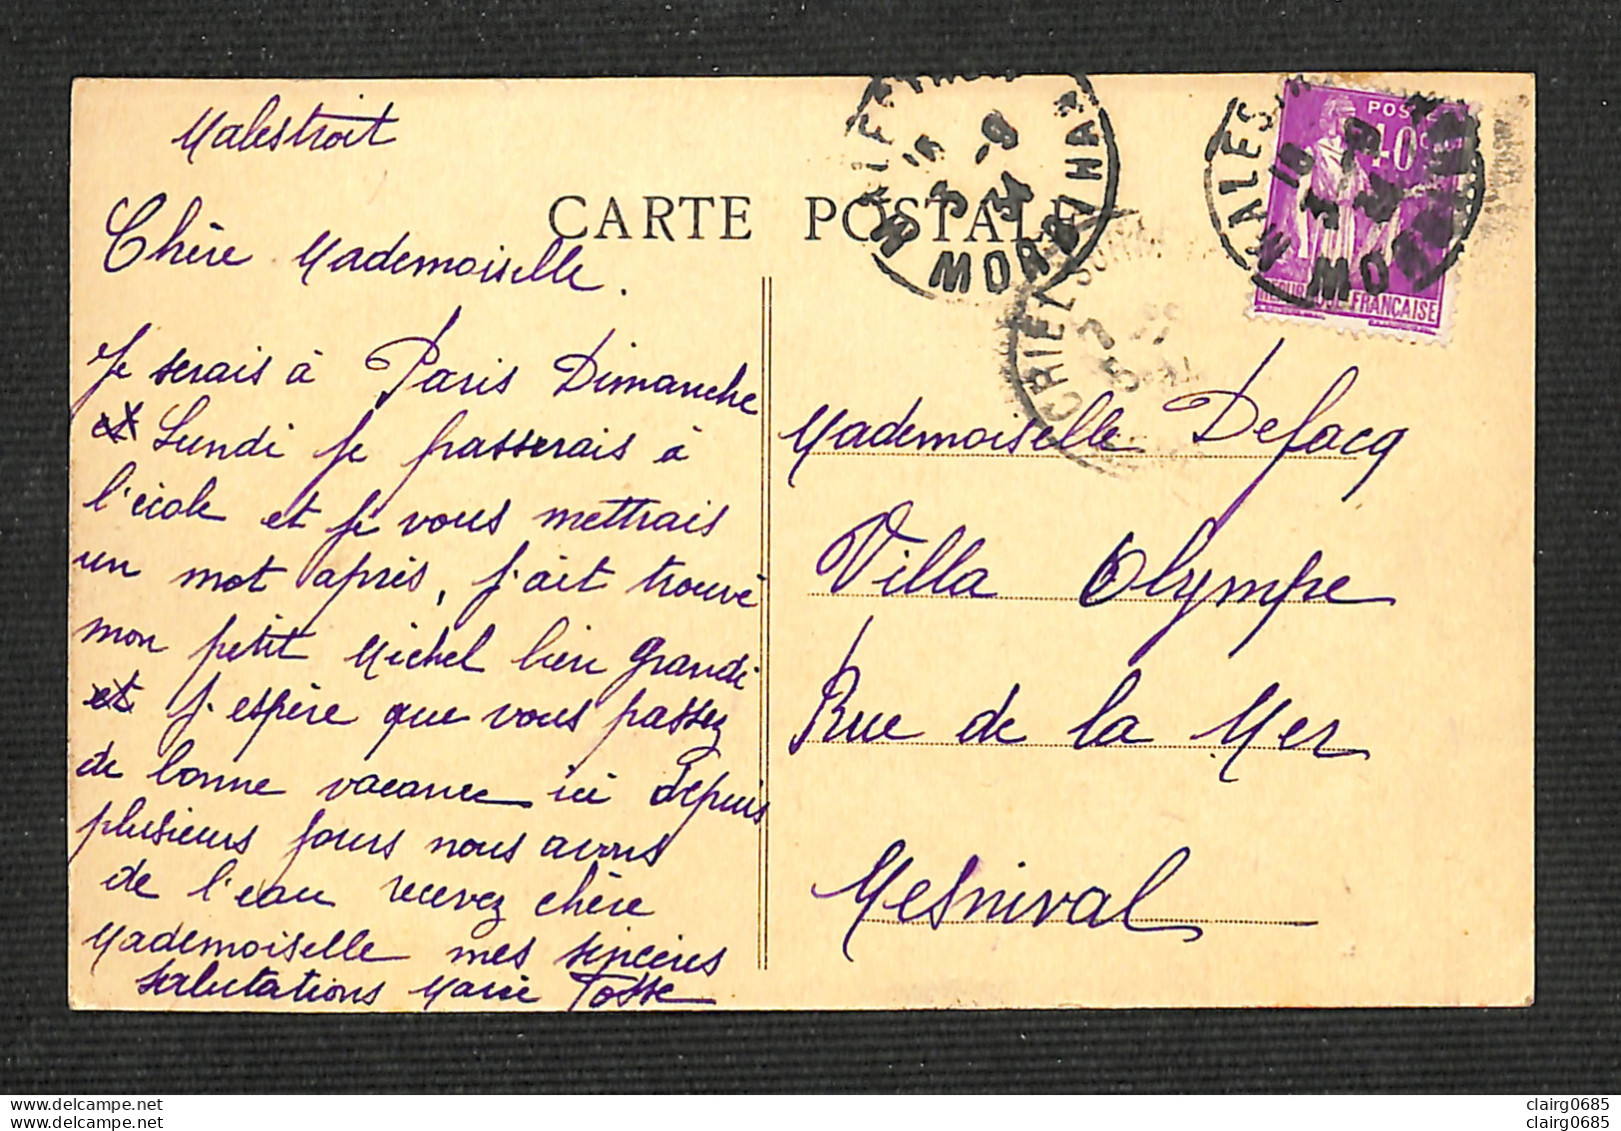 Malestroit
CARTE POSTALE
Chère Mademoiselle.
Je serais à Paris Dimanche
et Lundi je passerais à
l'école et je vous mettrais
un mot après, j'ait trouvé
mon petit Michel bien grandi
et j'espère que vous passez
de bonne vacance ici depuis
plusieurs jours nous avons
de l'eau recevez chère
Mademoiselle mes sincères
salutations Marie Posse
MALESTROIT
18
3 - 9
34
MORBIHAN
MALES
18
3 - 9
34
MORBIHAN
POSTES
40c
REPUBLIQUE FRANÇAISE
CRIEL SUR
Mademoiselle Defacq
Villa Olympe
Rue de la Mer
Mesnival
clairg0685
clairg0685
clairg0685
clairg0685